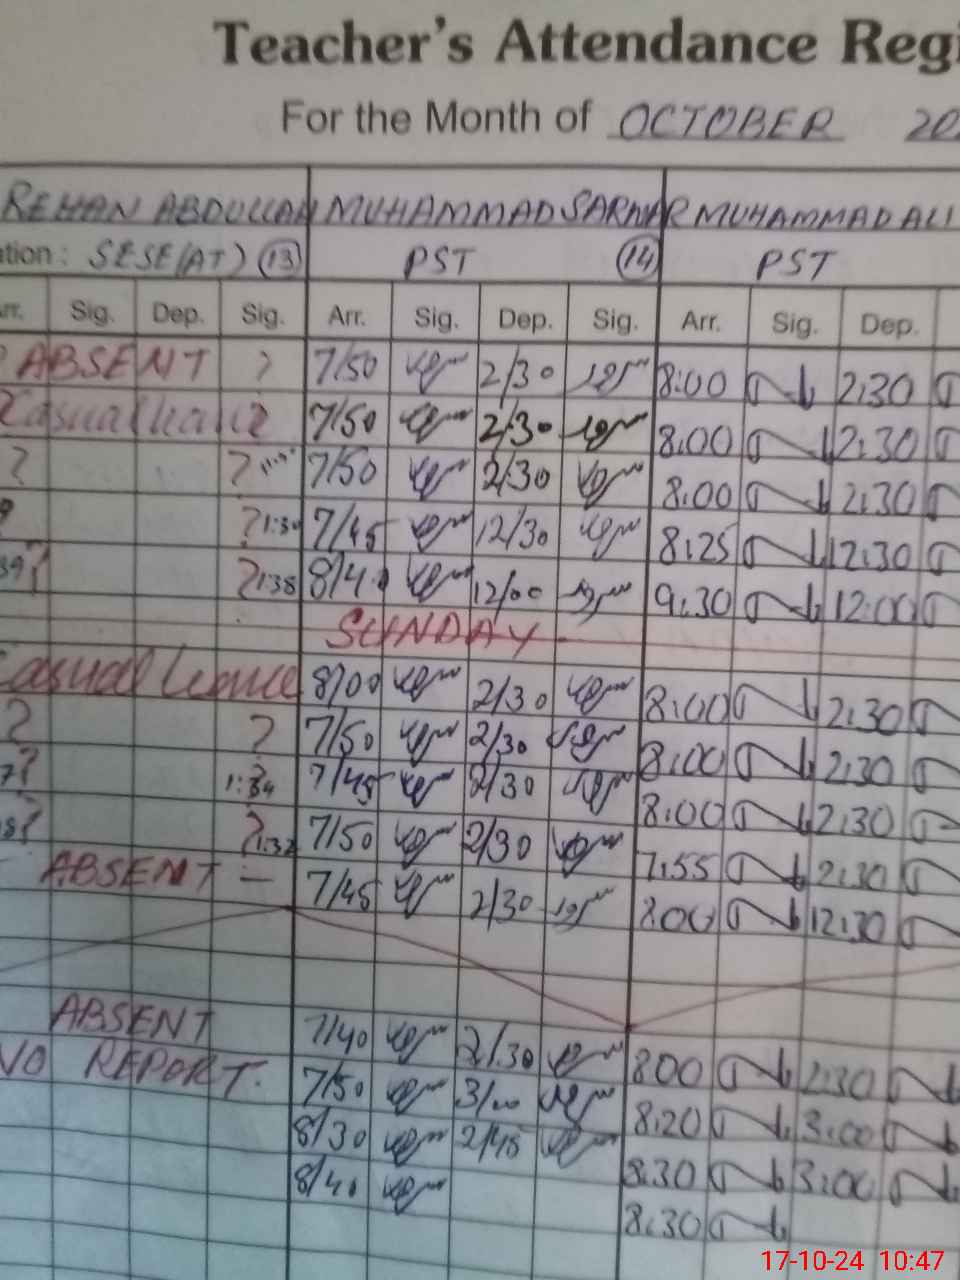 Teacher's Attendance Regi
For the Month of OCTOBER 20
REHAN ABDULLAH MUHAMMAD SARWAR MUHAMMAD ALI
tion: SESE(AT) 13 PST 14 PST
rr. Sig. Dep. Sig. Arr. Sig. Dep. Sig. Arr. Sig. Dep.
ABSENT ? 7/50 2/30 8:00 2:30
Casual leave 7/50 2/30 8:00 2:30
? ? 7/50 2/30 8:00 2:30
? 1:30 7/45 12/30 8:25 12:30
39? ? 1:38 8/40 12/00 9:30 12:00
SUNDAY
Casual leave 8/00 2/30 8:00 2:30
? ? 7/50 2/30 8:00 2:30
7? 1:34 7/45 2/30 8:00 2:30
? ? 1:32 7/50 2/30 7:55 2:30
ABSENT 7/45 2/30 8:00 12:30
ABSENT 7/40 2/30 8:00 2:30
NO REPORT. 7/50 3/00 8:20 3:00
8/30 2/45 8:30 3:00
8/40 8:30
17-10-24 10:47